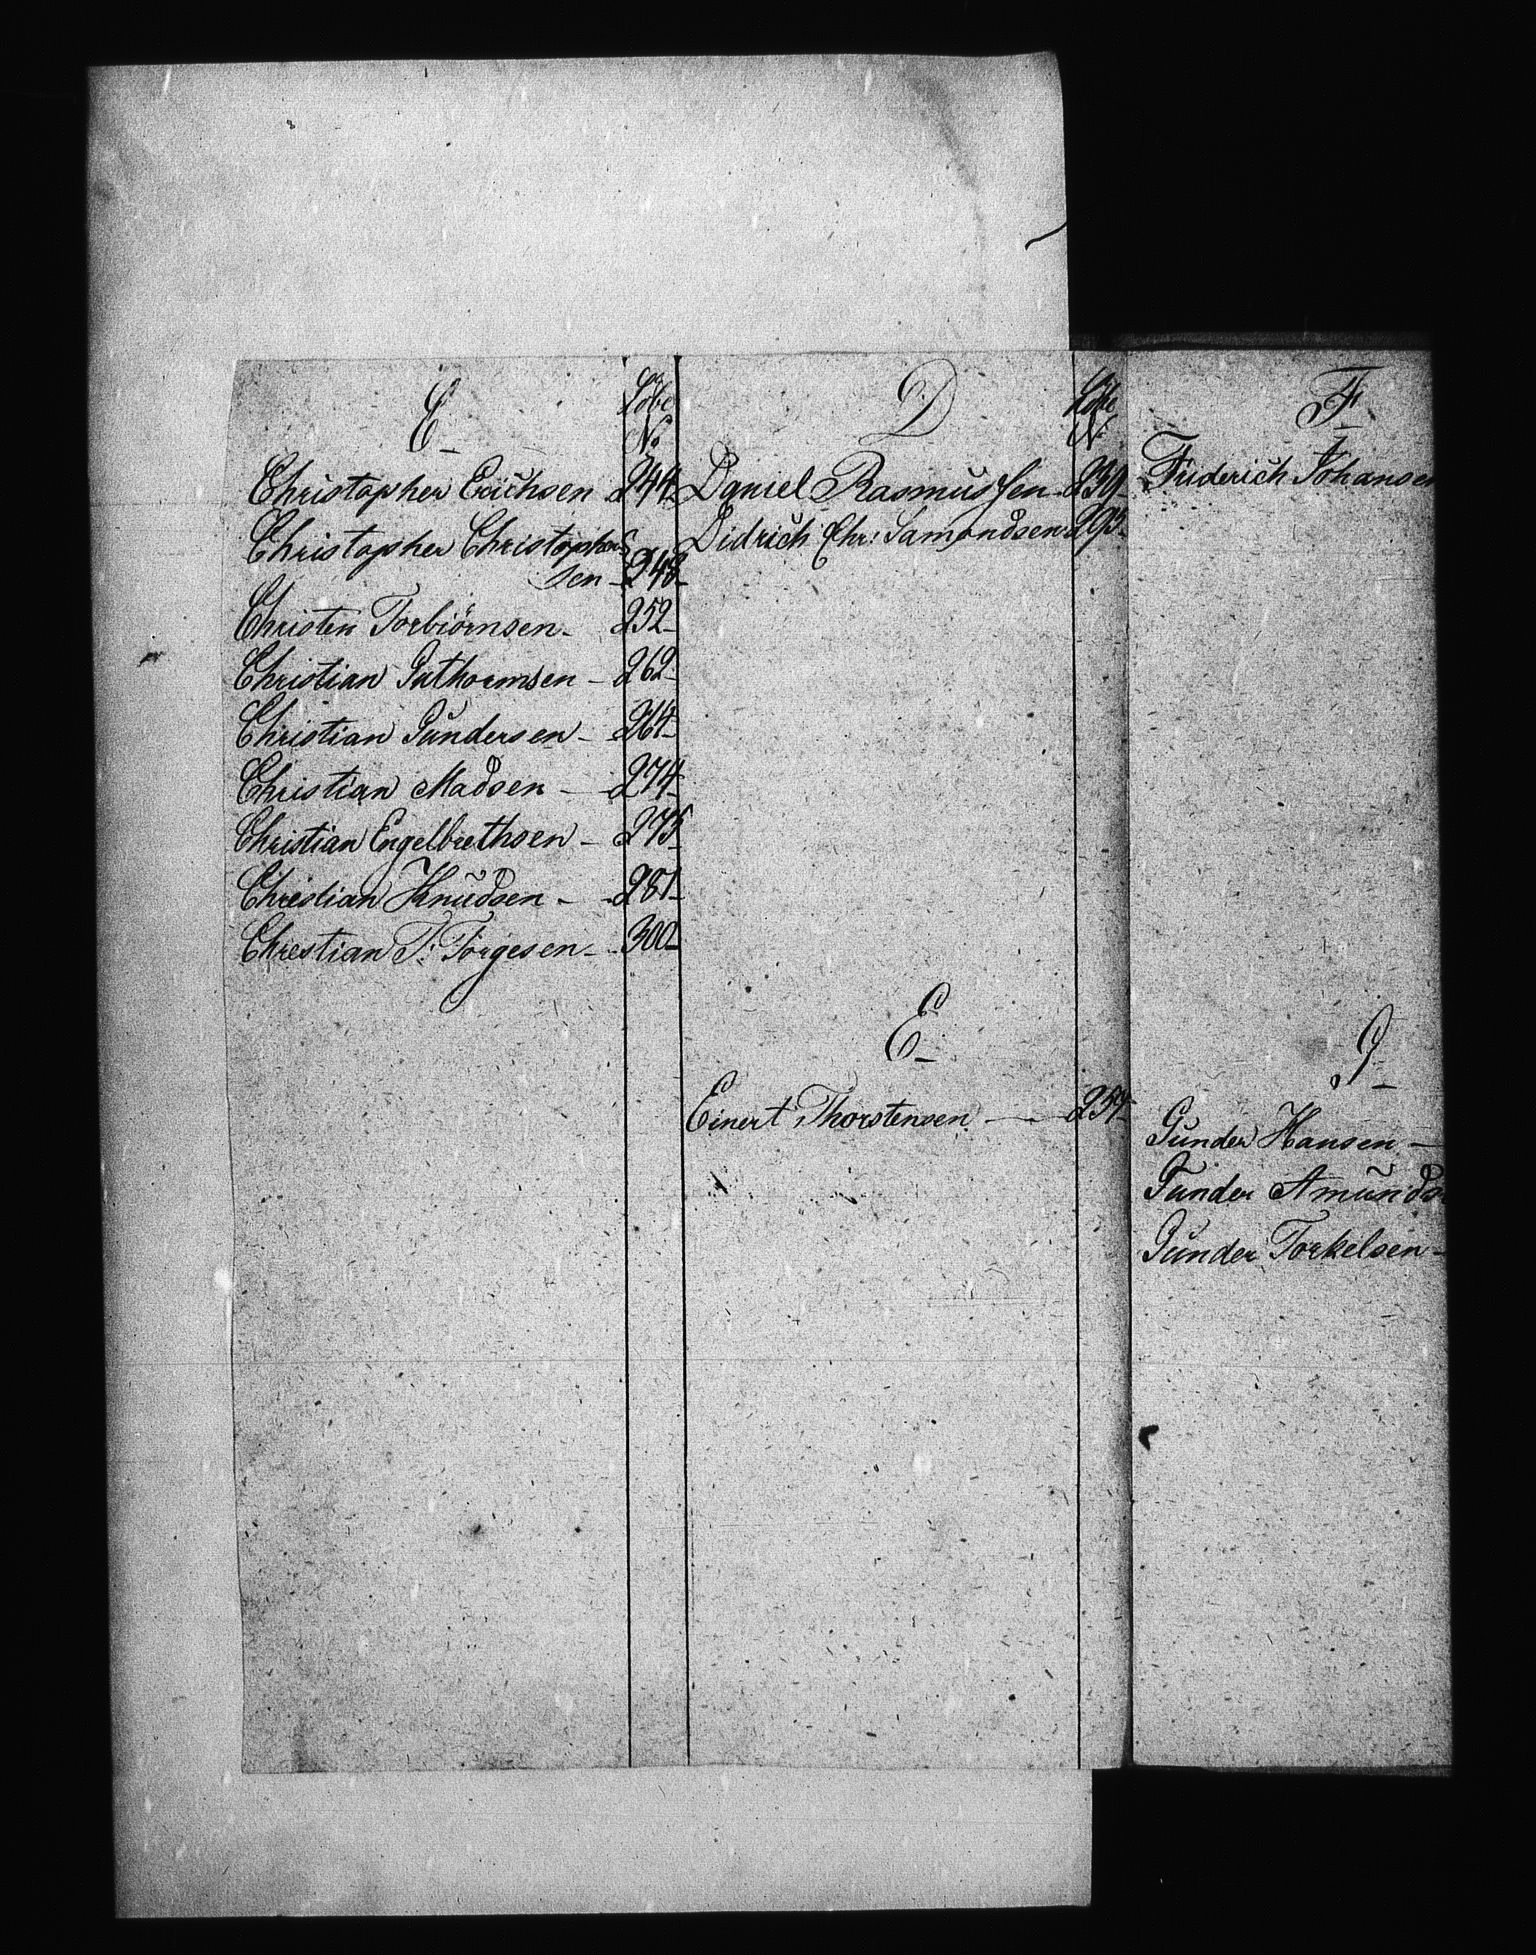 C
Löbe
No
Christopher Erichsen 244
Christopher Christopher
sen 248
Christen Torbiörnsen 252
Christian Guthormsen 262
Christian Gundersen 264
Christian Madsen 274
Christian Engelbrethsen 275
Christian Knudsen 281
Christian T: Törgesen 300
D
Löbe
No
Daniel Rasmussen 239
Didrich Chr: Samondsen 293
E
Einert Thorstensen 257
F
Friderich Johansen
G
Gunder Hansen
Gunder Amunds
Gunder Torkelsen